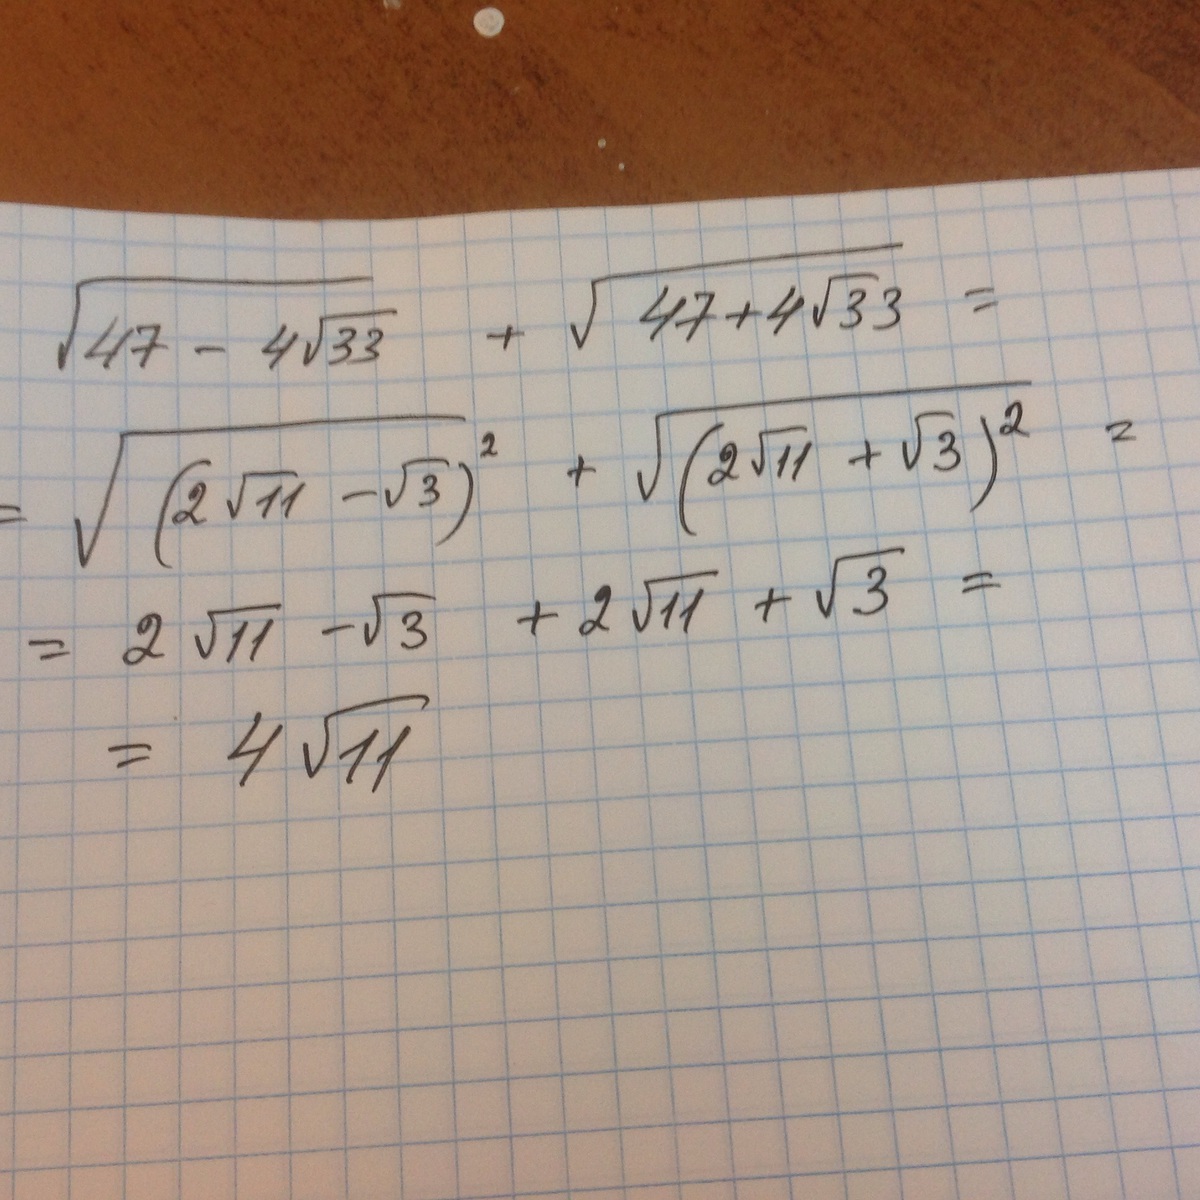 √(47 - 4√33) + √(47 + 4√33) =
= √(2√11 - √3)² + √(2√11 + √3)² =
= 2√11 - √3 + 2√11 + √3 =
= 4√11